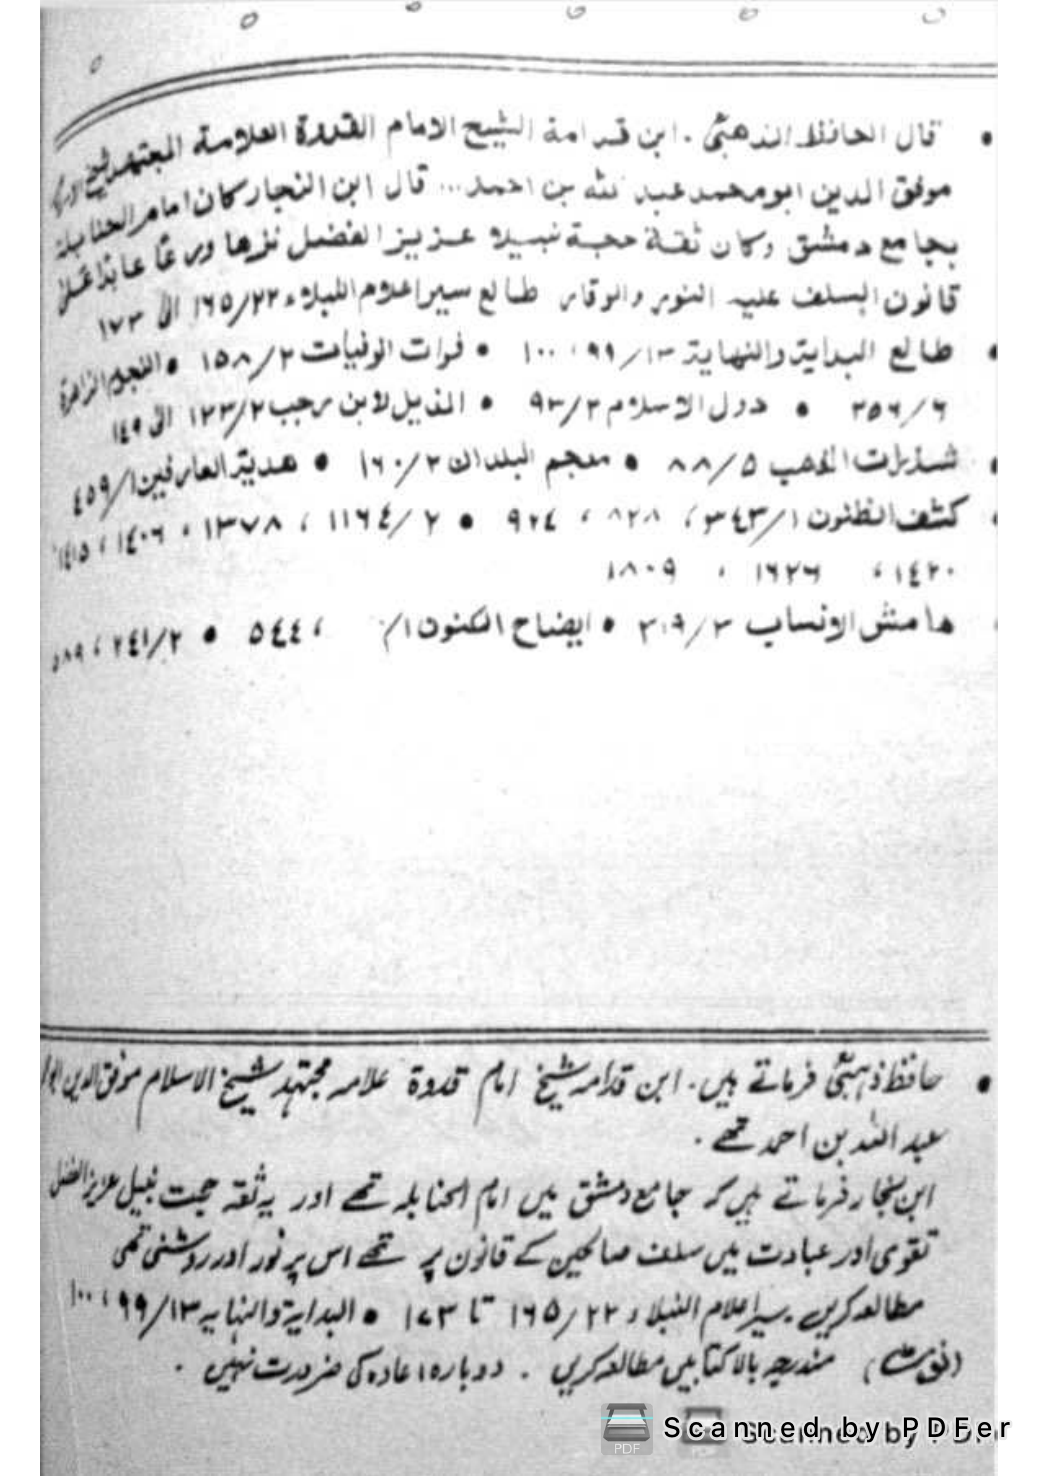 • قال الحافظ الذهبیؒ . ابن قدامة الشیخ الامام القدوة العلامة المجتهد شیخ
موفق الدین ابو محمد عبد الله بن احمد... قال ابن النجار کان امام الحنابلة
بجامع دمشق وکان ثقة حجة نبیلا عزیز الفضل نزها ورعًا عابدًا علیٰ
قانون السلف علیه النور والوقار طالع سیر اعلام النبلاء ٢٢/١٦٥ الی ١٧٣
• طالع البدایة والنهایة ١٣/٩٩، ١٠٠ • فوات الوفیات ٢/١٥٨ • النجوم الزاهرة
٦/٢٥٦ • دول الاسلام ٢/٩٣ • الذیل لابن رجب ٢/١٣٣ الی ١٤٩
• شذرات الذهب ٥/٨٨ • معجم البلدان ٢/١٦٠ • هدیة العارفین ١/٤٥٩
• کشف الظنون ١/٣٤٣، ٨٢٨، ٩٢٤ • ٢/١١٦٤، ١٣٧٨، ١٤٠٦، ١٤١٥،
١٤٢٠، ١٦٢٦، ١٨٠٩
هامش الانساب ٣/٣١٩ • ایضاح المکنون ١/ ، ٥٤٤ • ٢/٢٤١، ٥٨٩
• حافظ ذہبیؒ فرماتے ہیں . ابن قدامہ شیخ امام قدوة علامہ مجتہد شیخ الاسلام موفق الدین
عبد اللہ بن احمد تھے .
ابن نجار فرماتے ہیں کہ جامع دمشق میں امام الحنابلہ تھے اور یہ ثقہ حجت نبیل عزیز الفضل
تقوی اور عبادت میں سلف صالحین کے قانون پر تھے اس پر نور اور روشنی تھی
مطالعہ کریں . سیر اعلام النبلاء ٢٢/١٦٥ تا ١٧٣ • البدایة والنہایہ ١٣/٩٩، ١٠٠
(نوٹ) مندرجہ بالا کتابیں مطالعہ کریں . دوبارہ اعادہ کی ضرورت نہیں .
Scanned by PDFer